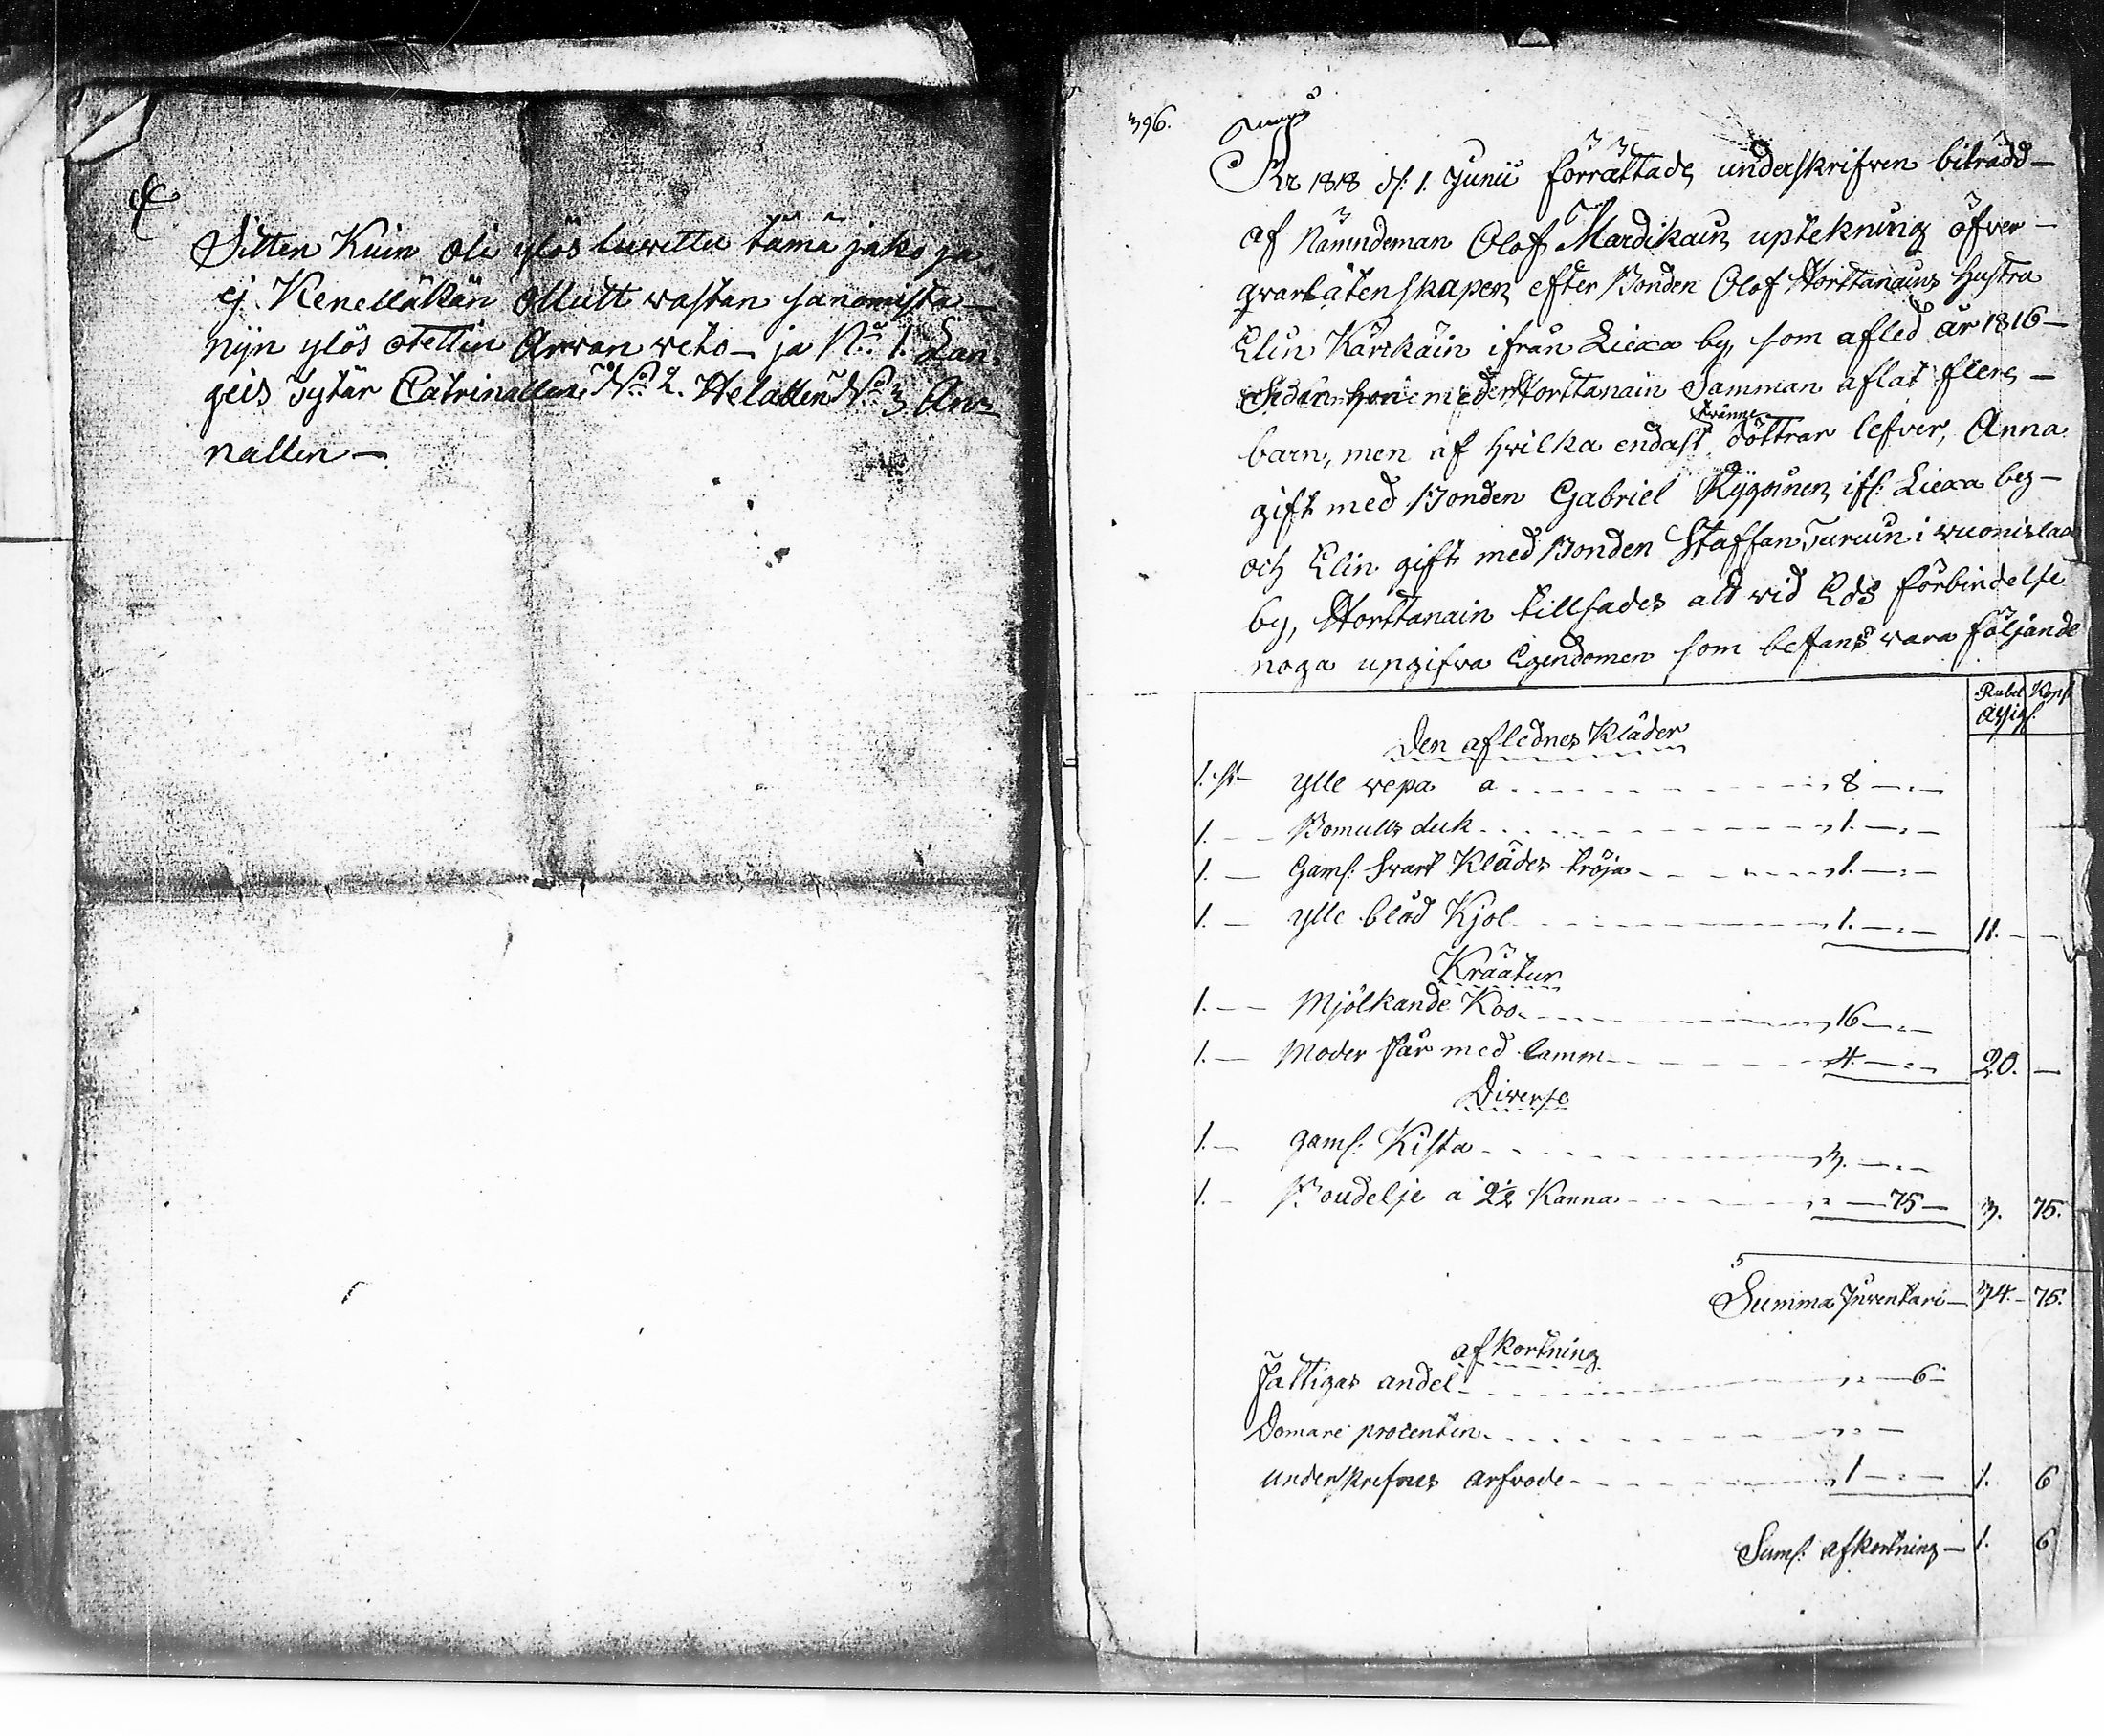 Sitten Kuin oli ylös luwettu tämä jako ja
ej Kenelläkän ollutt wastan sanomista —
nijn ylös otettin Arwan weto — ja N:o 1. Lan-
geis Tytär Catrinallen, N:o 2. Helallen N:o 3 An-
nallen —
396.
År 1818 d: 1. Junii förrättade underskrifven biträdd —
af Nämndeman Olof Mardikain uptekning öfver —
qvarlåtenskapen efter Bonden Olof Horttanains hustru
Elin Kärkäin ifrån Liexa by, som afled år 1816 —
Sedan hon med Horttanain Samman aflat flere —
barn, men af hvilka endast tvänne döttrar lefver, Anna
gift med Bonden Gabriel if: Liexa by —
och Elin gift med Bonden Staffan Turuin i wuonislax
by, Horttanain tillsades att wid Eds förbindelse
noga upgifva Egendomen som befans wara följande
Rubel Kop:
Assig:
Den aflednes Kläder
1. st — ylle wepa a — 8 —
1. — Bomulls duk — 1. —
1. — Gam: Svart Klädes tröja — 1. —
1. — ylle blåd Kjol — 1. — 11. —
Kräatur
1. — Mjölkande Koo — 16 —
1. — Moder får med lamm — 4. — 20. —
Diverse
1. — gam: Kista — 3. —
1. — Boudelje a 2½ Kanna — 75 — 3. 75.
Summa Inventari — 34. 75.
afkortning
Fattigas andel — 6
Domare procenten —
underskrefnes arfvode — 1 — 1. 6
Sum: afkortning — 1. 6